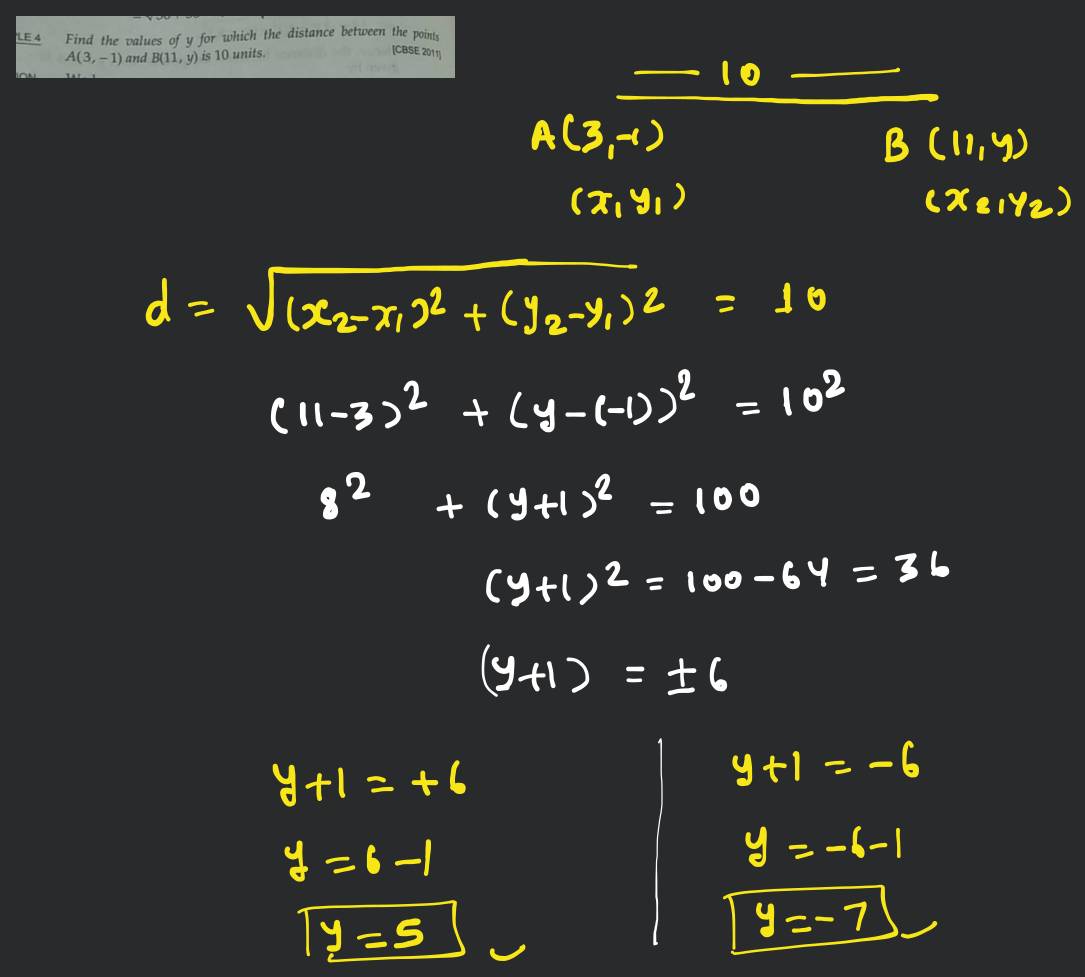 LE 4 Find the values of y for which the distance between the points
A(3, – 1) and B(11, y) is 10 units. [CBSE 2011]
10
A(3,-1) B (11,y)
(x1 y1) (x2,y2)
d = √(x2-x1)² + (y2-y1)² = 10
(11-3)² + (y-(-1))² = 10²
8² + (y+1)² = 100
(y+1)² = 100-64 = 36
(y+1) = ±6
y+1 = +6
y = 6-1
y = 5
y+1 = -6
y = -6-1
y = -7